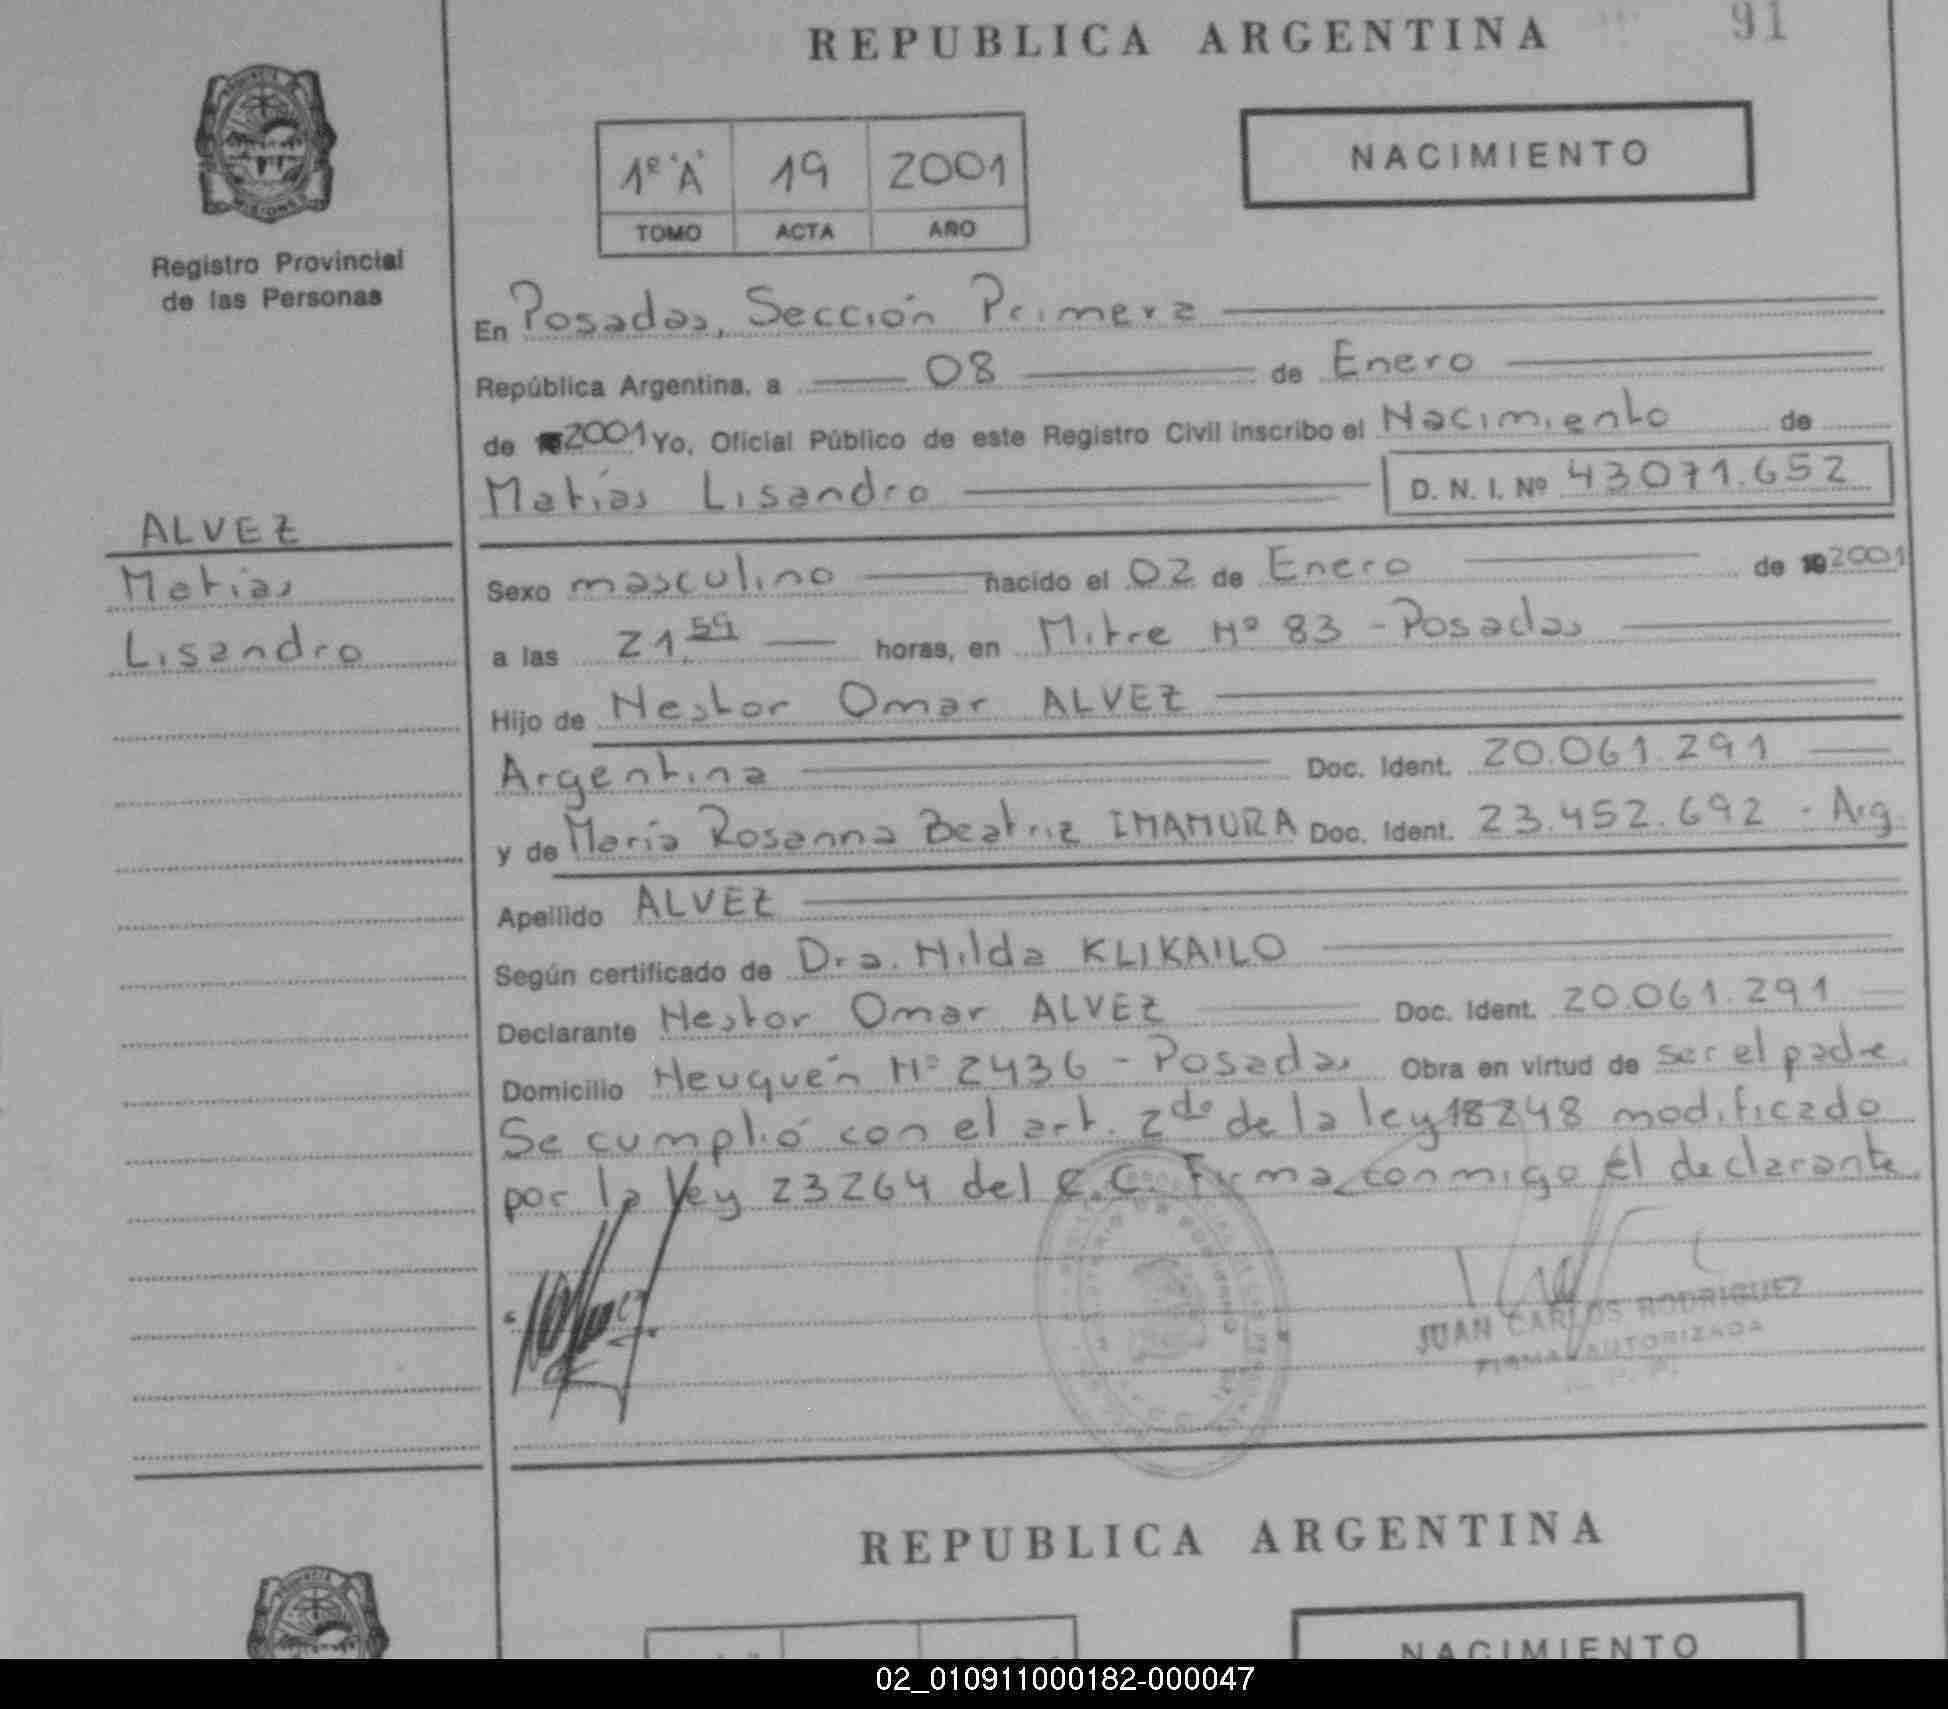 REPUBLICA ARGENTINA 91
PROVINCIA
MISIONES
Registro Provincial
de las Personas
1º "A" 19 2001
TOMO ACTA AÑO
NACIMIENTO
En Posadas, Sección Primera
República Argentina, a 08 de Enero
de 2001 Yo, Oficial Público de este Registro Civil inscribo el Nacimiento de
Matías Lisandro D. N. I. Nº 43.071.652
ALVEZ
Matías
Lisandro
Sexo masculino nacido el 02 de Enero de 19 2001
a las 21,59 horas, en Mitre Nº 83 - Posadas
Hijo de Nestor Omar ALVEZ
Argentina Doc. Ident. 20.061.291
y de María Rosanna Beatriz IMAMURA Doc. Ident. 23.452.692 - Arg.
Apellido ALVEZ
Según certificado de Dra. Hilda KLIKAILO
Declarante Nestor Omar ALVEZ Doc. Ident. 20.061.291
Domicilio Neuquén Nº 2436 - Posadas Obra en virtud de ser el padre.
Se cumplió con el art. 2do de la ley 18248 modificado
por la ley 23264 del C.C. Firma conmigo él declarante.
JUAN CARLOS RODRIGUEZ
FIRMA AUTORIZADA
REPUBLICA ARGENTINA
PROVINCIA
NACIMIENTO
02_010911000182-000047